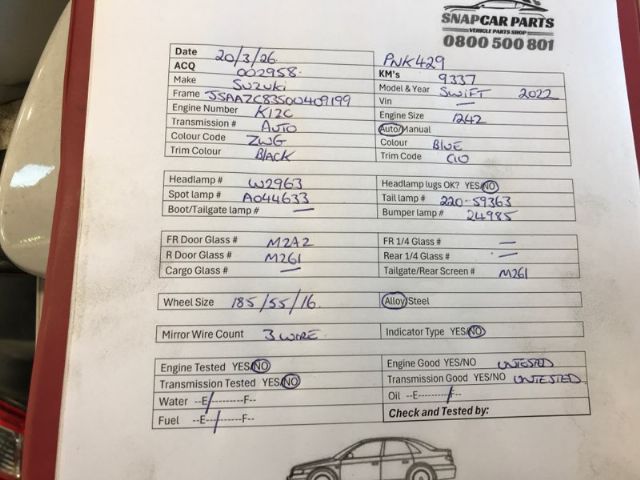 SNAPCAR PARTS
VEHICLE PARTS SHOP
0800 500 801
Date 20/3/26 PNK429
ACQ 002958 KM's 9337
Make SUZUKI Model & Year SWIFT 2022
Frame JSAAZC83S00409199 Vin —
Engine Number K12C Engine Size 1242
Transmission # AUTO Auto/Manual
Colour Code ZWG Colour BLUE
Trim Colour BLACK Trim Code C10
Headlamp # W2963 Headlamp lugs OK? YES/NO
Spot lamp # A044633 Tail lamp # 220-59363
Boot/Tailgate lamp # — Bumper lamp # 24985
FR Door Glass # M2A2 FR 1/4 Glass # —
R Door Glass # M261 Rear 1/4 Glass # —
Cargo Glass # — Tailgate/Rear Screen # M261
Wheel Size 185/55/16 Alloy/Steel
Mirror Wire Count 3 WIRE Indicator Type YES/NO
Engine Tested YES/NO Engine Good YES/NO UNTESTED
Transmission Tested YES/NO Transmission Good YES/NO UNTESTED
Water --E/---------F-- Oil --E---------/F--
Fuel --E--/-------F-- Check and Tested by: